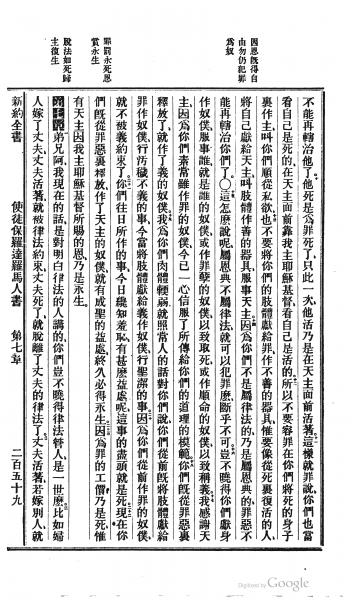 因恩旣得自
由勿仍犯罪
爲叙
罪罰永死恩
賞永生
脫法如死歸
主復生
不能再轄治他了他死是爲罪死了只此一次他活乃是在天主面前活著這樣就罪說你們也當
看自己是死的在天主面前靠我主耶穌基督看自己是活的所以不要容罪在你們將死的身子
裏作主叫你們順從私欲也不要將你們的肢體獻給罪作不善的器具惟要像從死裏復活的人
將自己獻給天主叫肢體作善的器具服事天主因爲你們不是屬律法的乃是屬恩典的罪惡不
能再轄治你們了○這怎麽說呢屬恩典不屬律法就可以犯罪麽斷乎不可豈不曉得你們獻身
作奴僕服事誰就是誰的奴僕或作罪孽的奴僕以致取死或作順命的奴僕以致稱義我感謝天
主因爲你們素常雖作罪的奴僕今已一心信服了所傳給你們的道理的模範你們旣從罪惡裏
釋放了就作了義的奴僕我爲你們肉體輭弱就照常人的話對你們說你們從前旣將肢體獻給
罪作奴僕行污穢不義的事今當將肢體獻給義作奴僕行聖潔的事因爲你們從前作罪的奴僕
就不被義約束了你們往日所作的事今日纔知羞恥有甚麽益處呢這事的盡頭就是死現在你
們旣從罪惡裏釋放作了天主的奴僕就有成聖的益處終久必得永生因爲罪的工價乃是死惟
有天主因我主耶穌基督所賜的恩乃是永生
第七章弟兄阿我現在的話是對明白律法的人講的你們豈不曉得律法管人是一世麽比如婦
人嫁了丈夫丈夫活著就被律法約束丈夫死了就脫離了丈夫的律法了丈夫活著若嫁別人就
新約全書 使徒保羅達羅馬人書 第七章 二百五十九
Digitized by Google